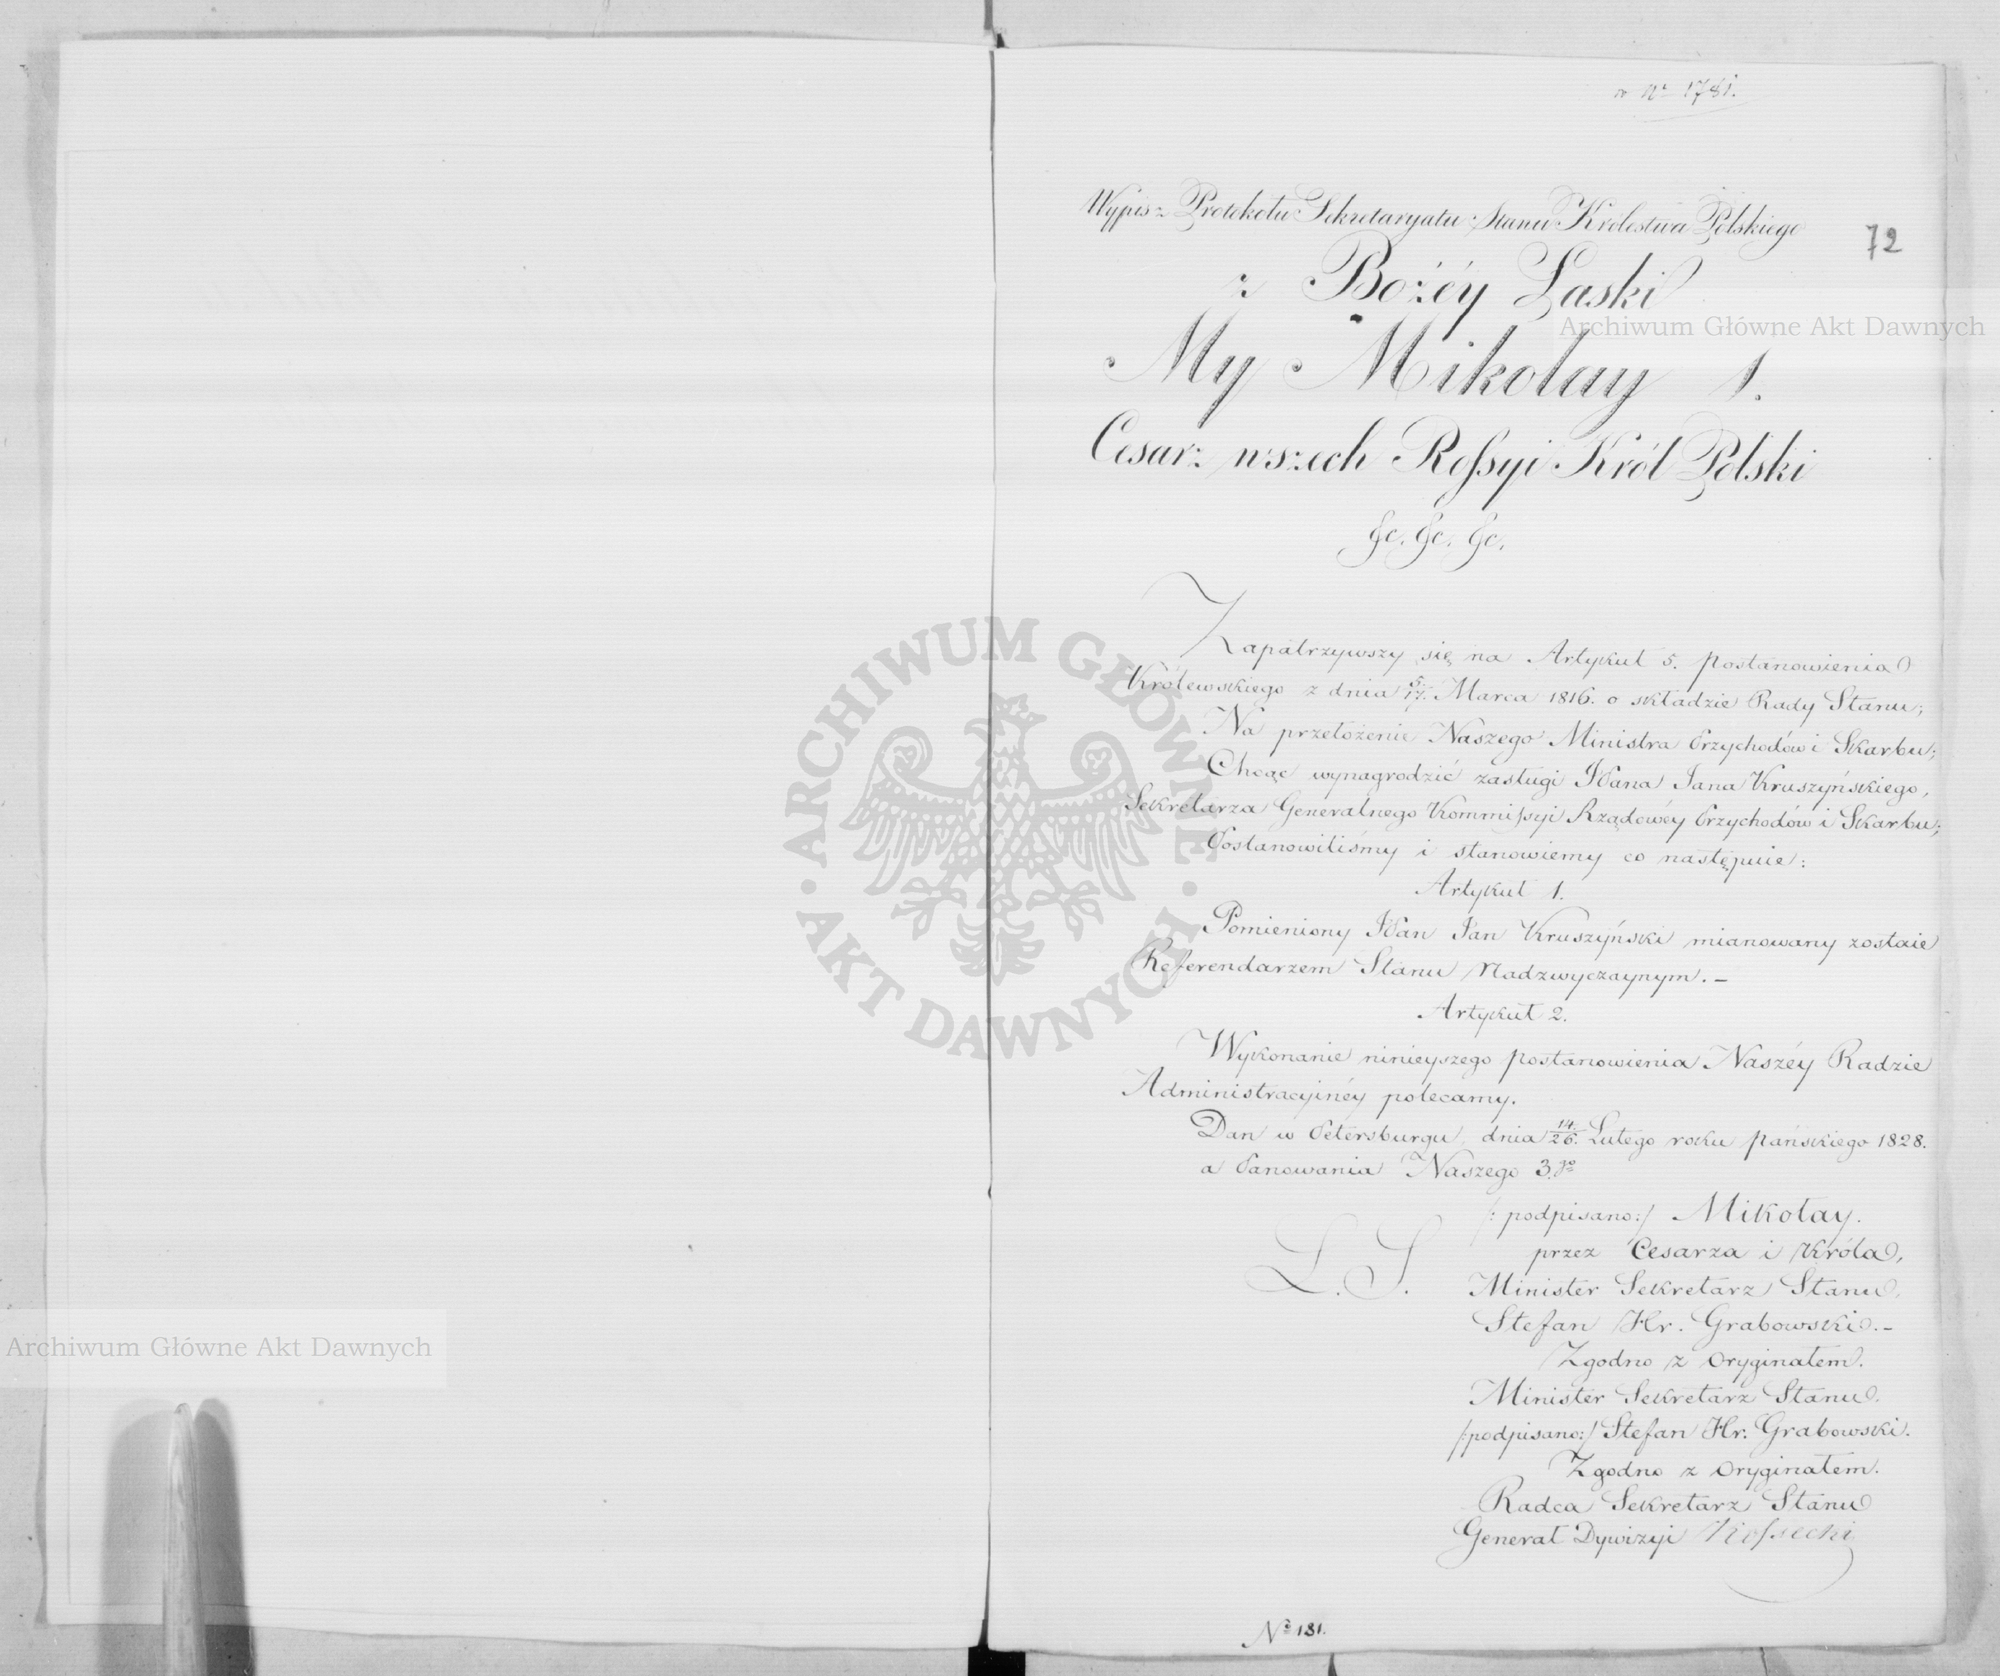 Nº 1781.
Wypis z Protokołu Sekretaryatu Stanu Królestwa Polskiego
72
z Bożéy Łaski
My Mikołay 1.
Cesarz wszech Rossyi Król Polski
&c. &c. &c.
Zapatrzywszy się na Artykuł 5. postanowienia
Królewskiego z dnia 5/17. Marca 1816. o składzie Rady Stanu;
Na przełożenie Naszego Ministra Przychodów i Skarbu;
Chcąc wynagrodzić zasługi Pana Jana Kruszyńskiego,
Sekretarza Generalnego Kommissyi Rządowéy Przychodów i Skarbu;
Postanowiliśmy i stanowiemy co następuie:
Artykuł 1.
Pomieniony Pan Jan Kruszyński mianowany zostaie
Referendarzem Stanu Nadzwyczaynym. –
Artykuł 2.
Wykonanie ninieyszego postanowienia Naszéy Radzie
Administracyinéy polecamy.
Dan w Petersburgu, dnia 14/26. Lutego roku pańskiego 1828.
a Panowania Naszego 3.go
/: podpisano:/ Mikołay.
przez Cesarza i Króla,
L. S.
Minister Sekretarz Stanu,
Stefan Hr. Grabowski. –
Zgodno z Oryginałem.
Minister Sekretarz Stanu.
/:podpisano:/ Stefan Hr. Grabowski.
Zgodno z Oryginałem.
Radca Sekretarz Stanu
Generał Dywizyi Kossecki
Nº 181.
Archiwum Główne Akt Dawnych
Archiwum Główne Akt Dawnych
ARCHIWUM GŁÓWNE
AKT DAWNYCH